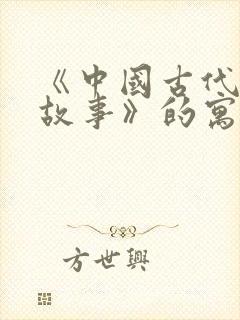 《中國古代
故事》的寓
方世興